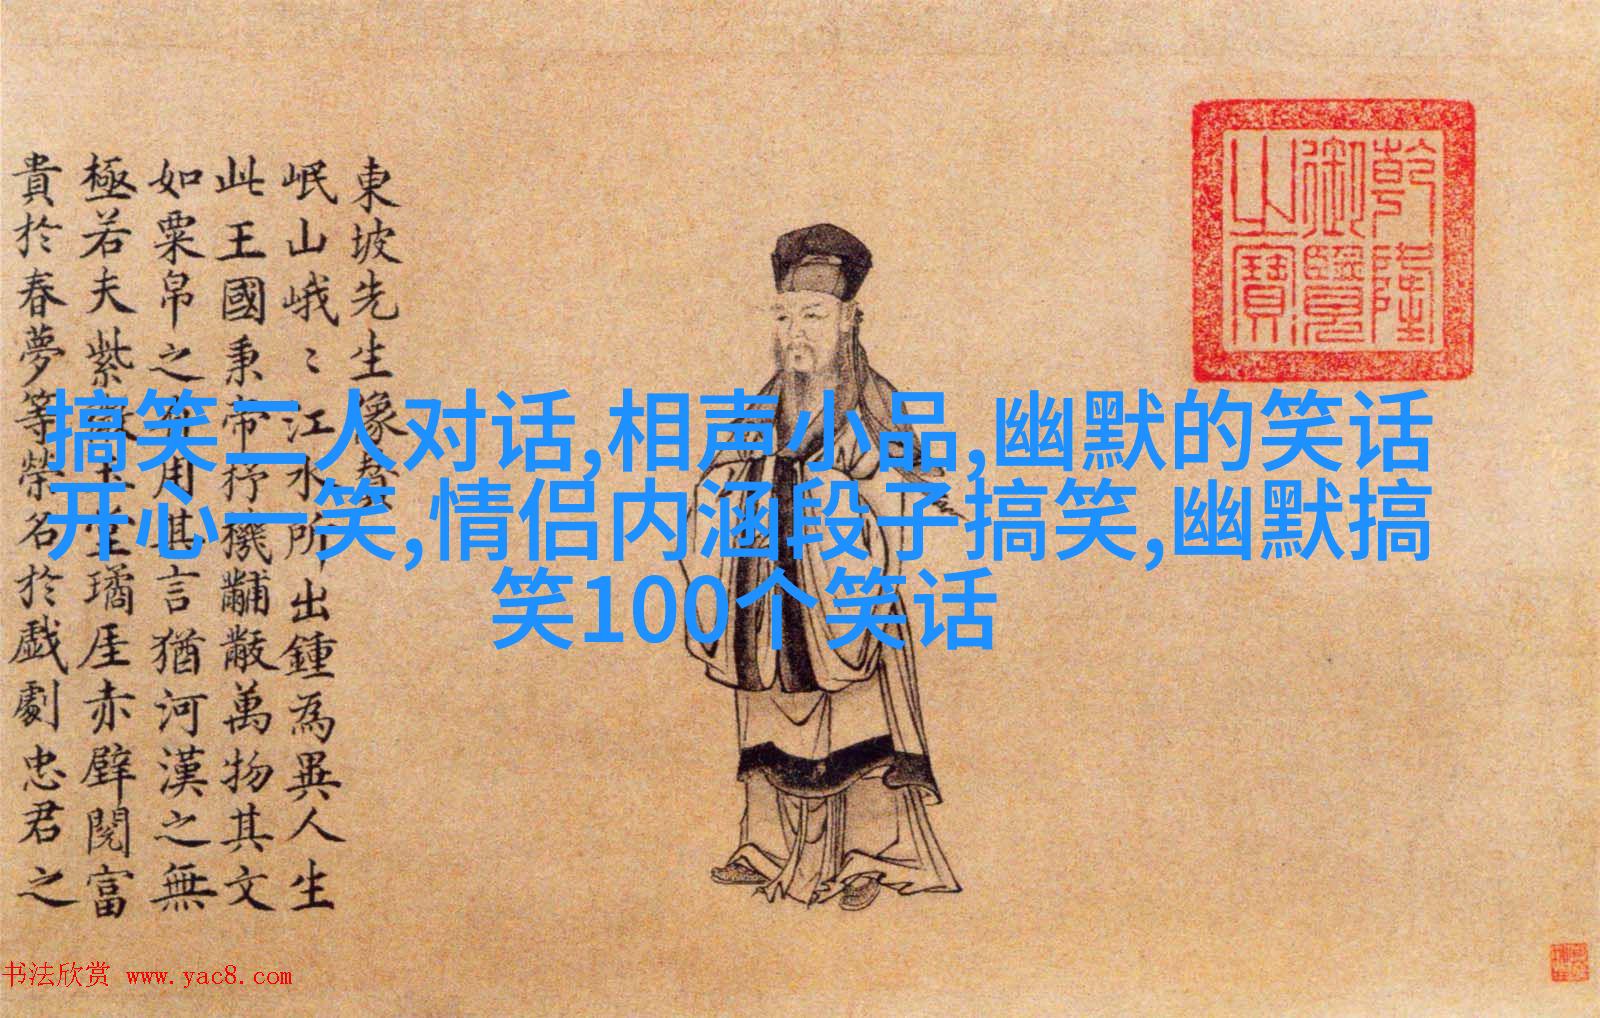 搞笑二人对话,相声小品,幽默的笑话
开心一笑,情侣内涵段子搞笑,幽默搞
笑100个笑话
東坡先生像賛
岷山峨〻江水所出鍾為異人生
此王國秉帝杼機黼黻萬物其文
如粟帛之有用其言猶河漢之無
極若夫紫微玉堂璚厓赤壁閱富
貴於春夢等榮名於戲劇忠君之
乾隆
御覽
之寶
书法欣赏 www.yac8.com